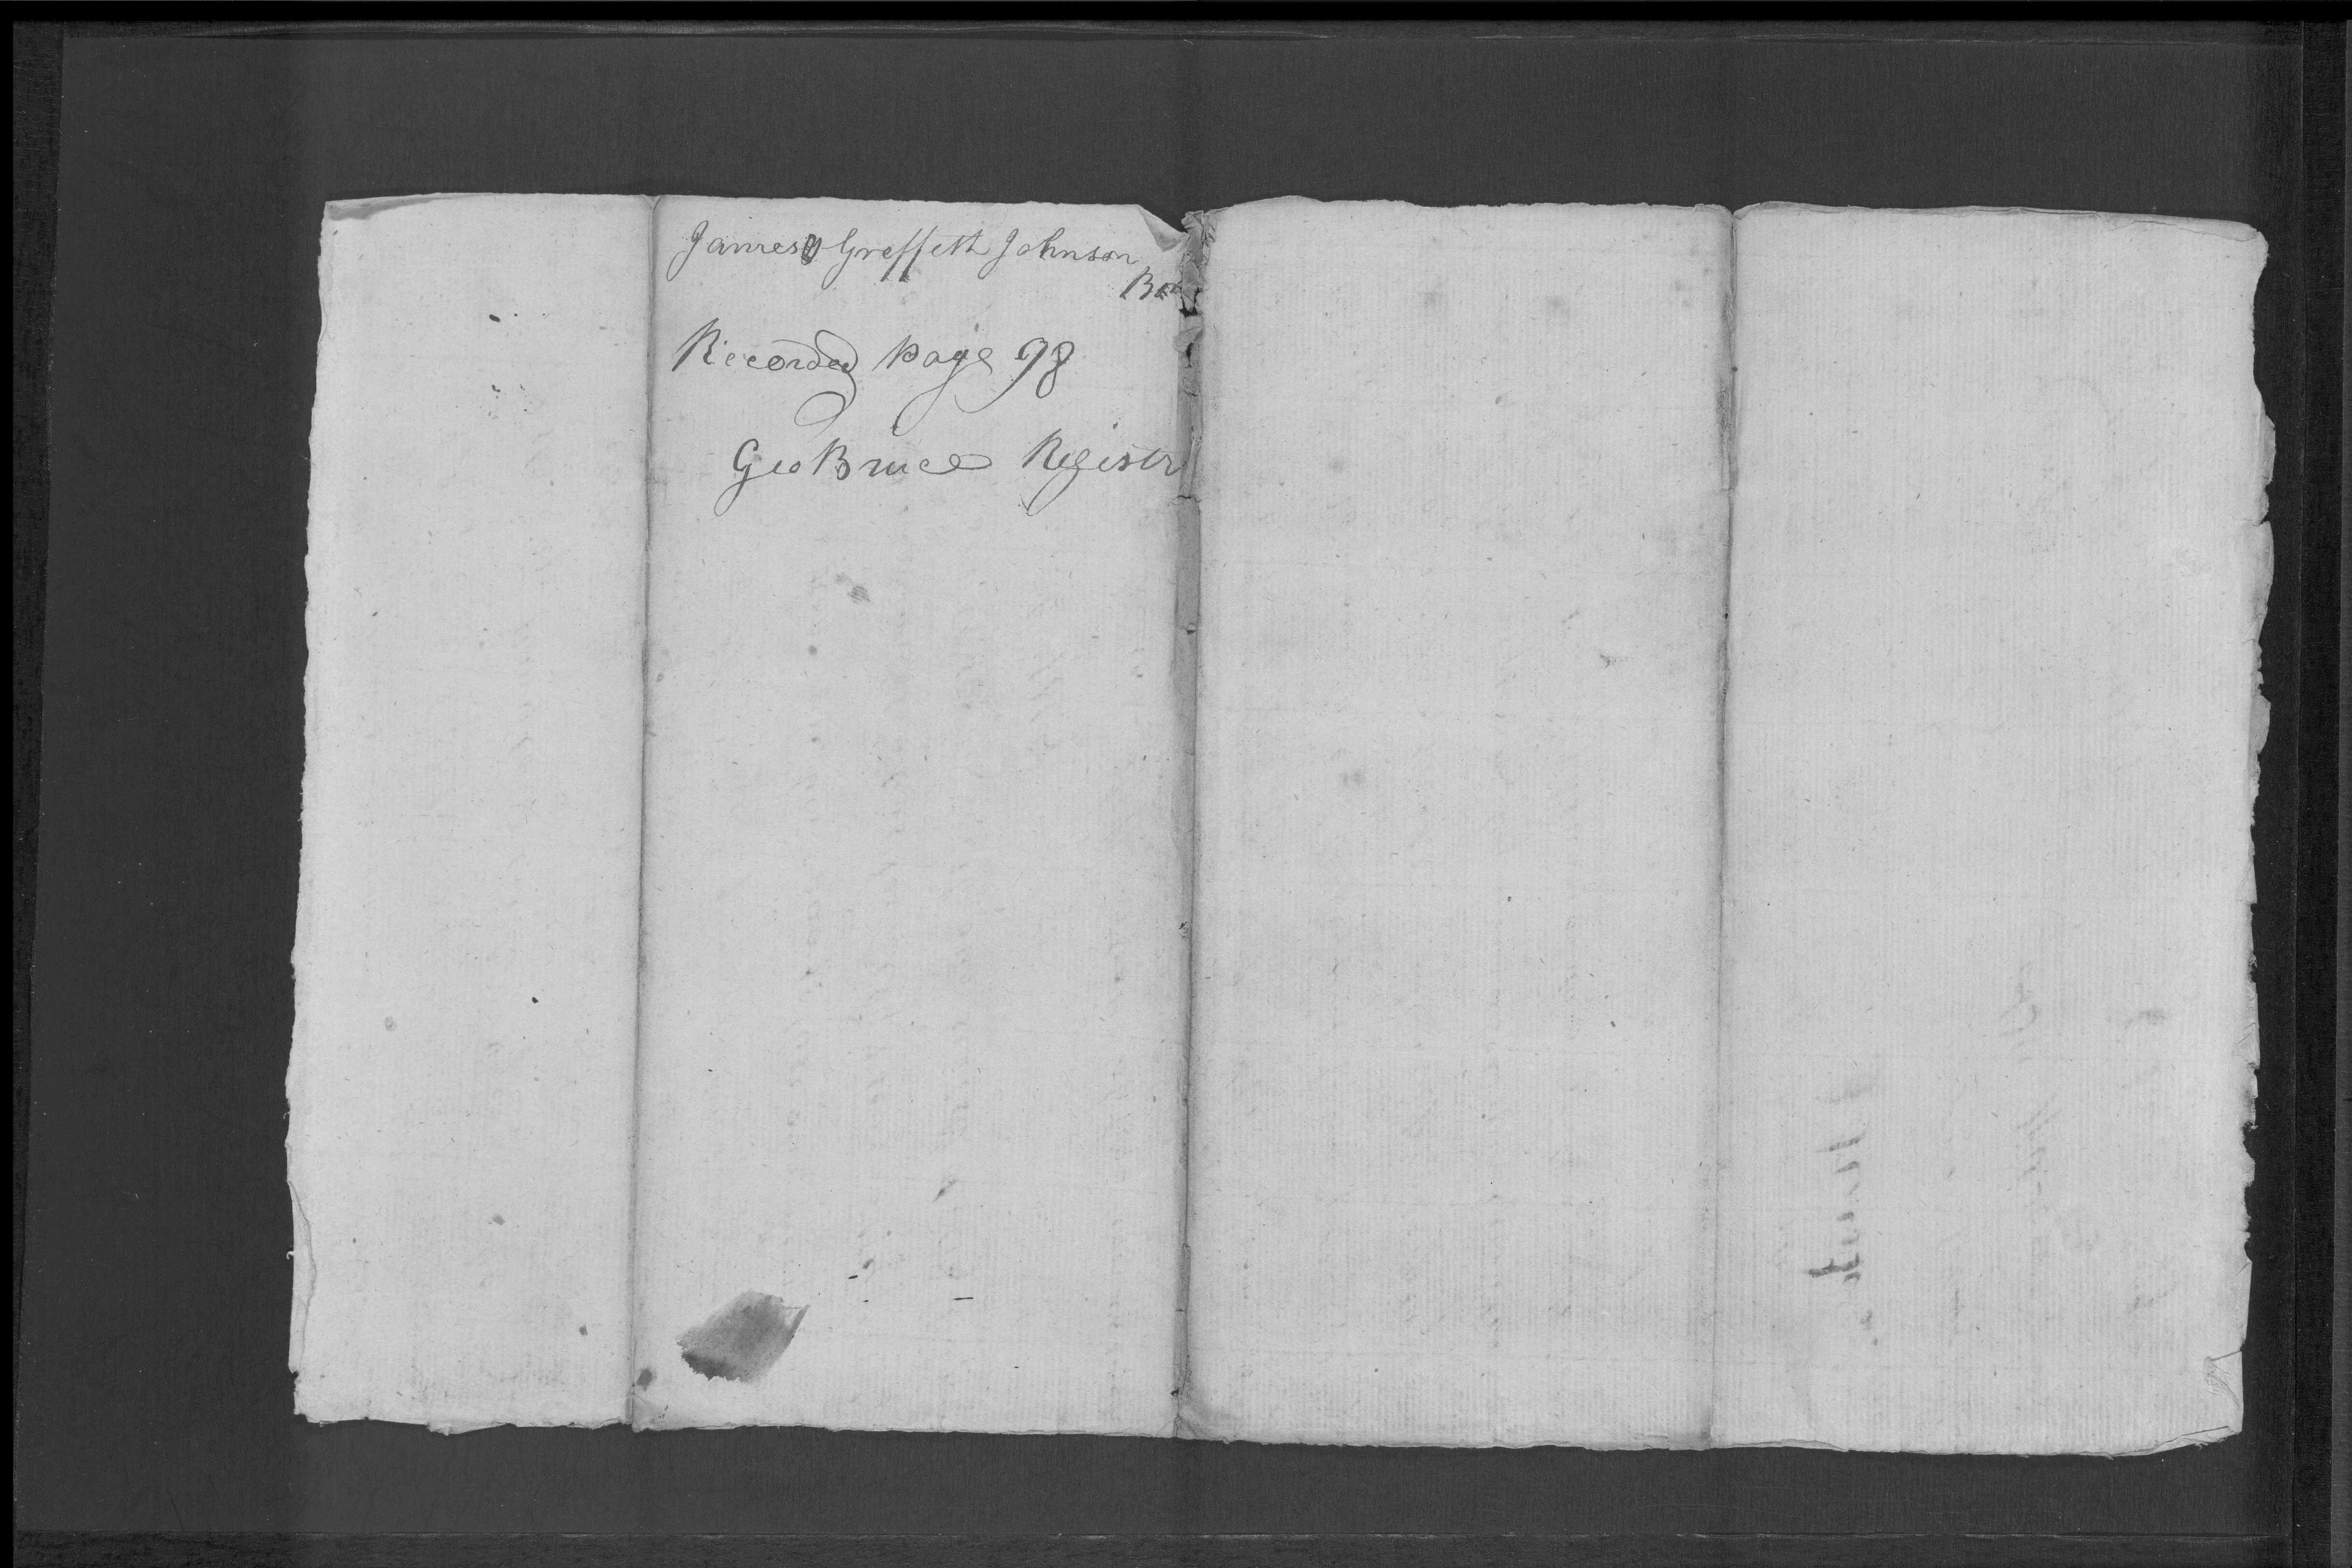 James Greffeth Johnson
Recorded page 98
Geo Bruce Registr